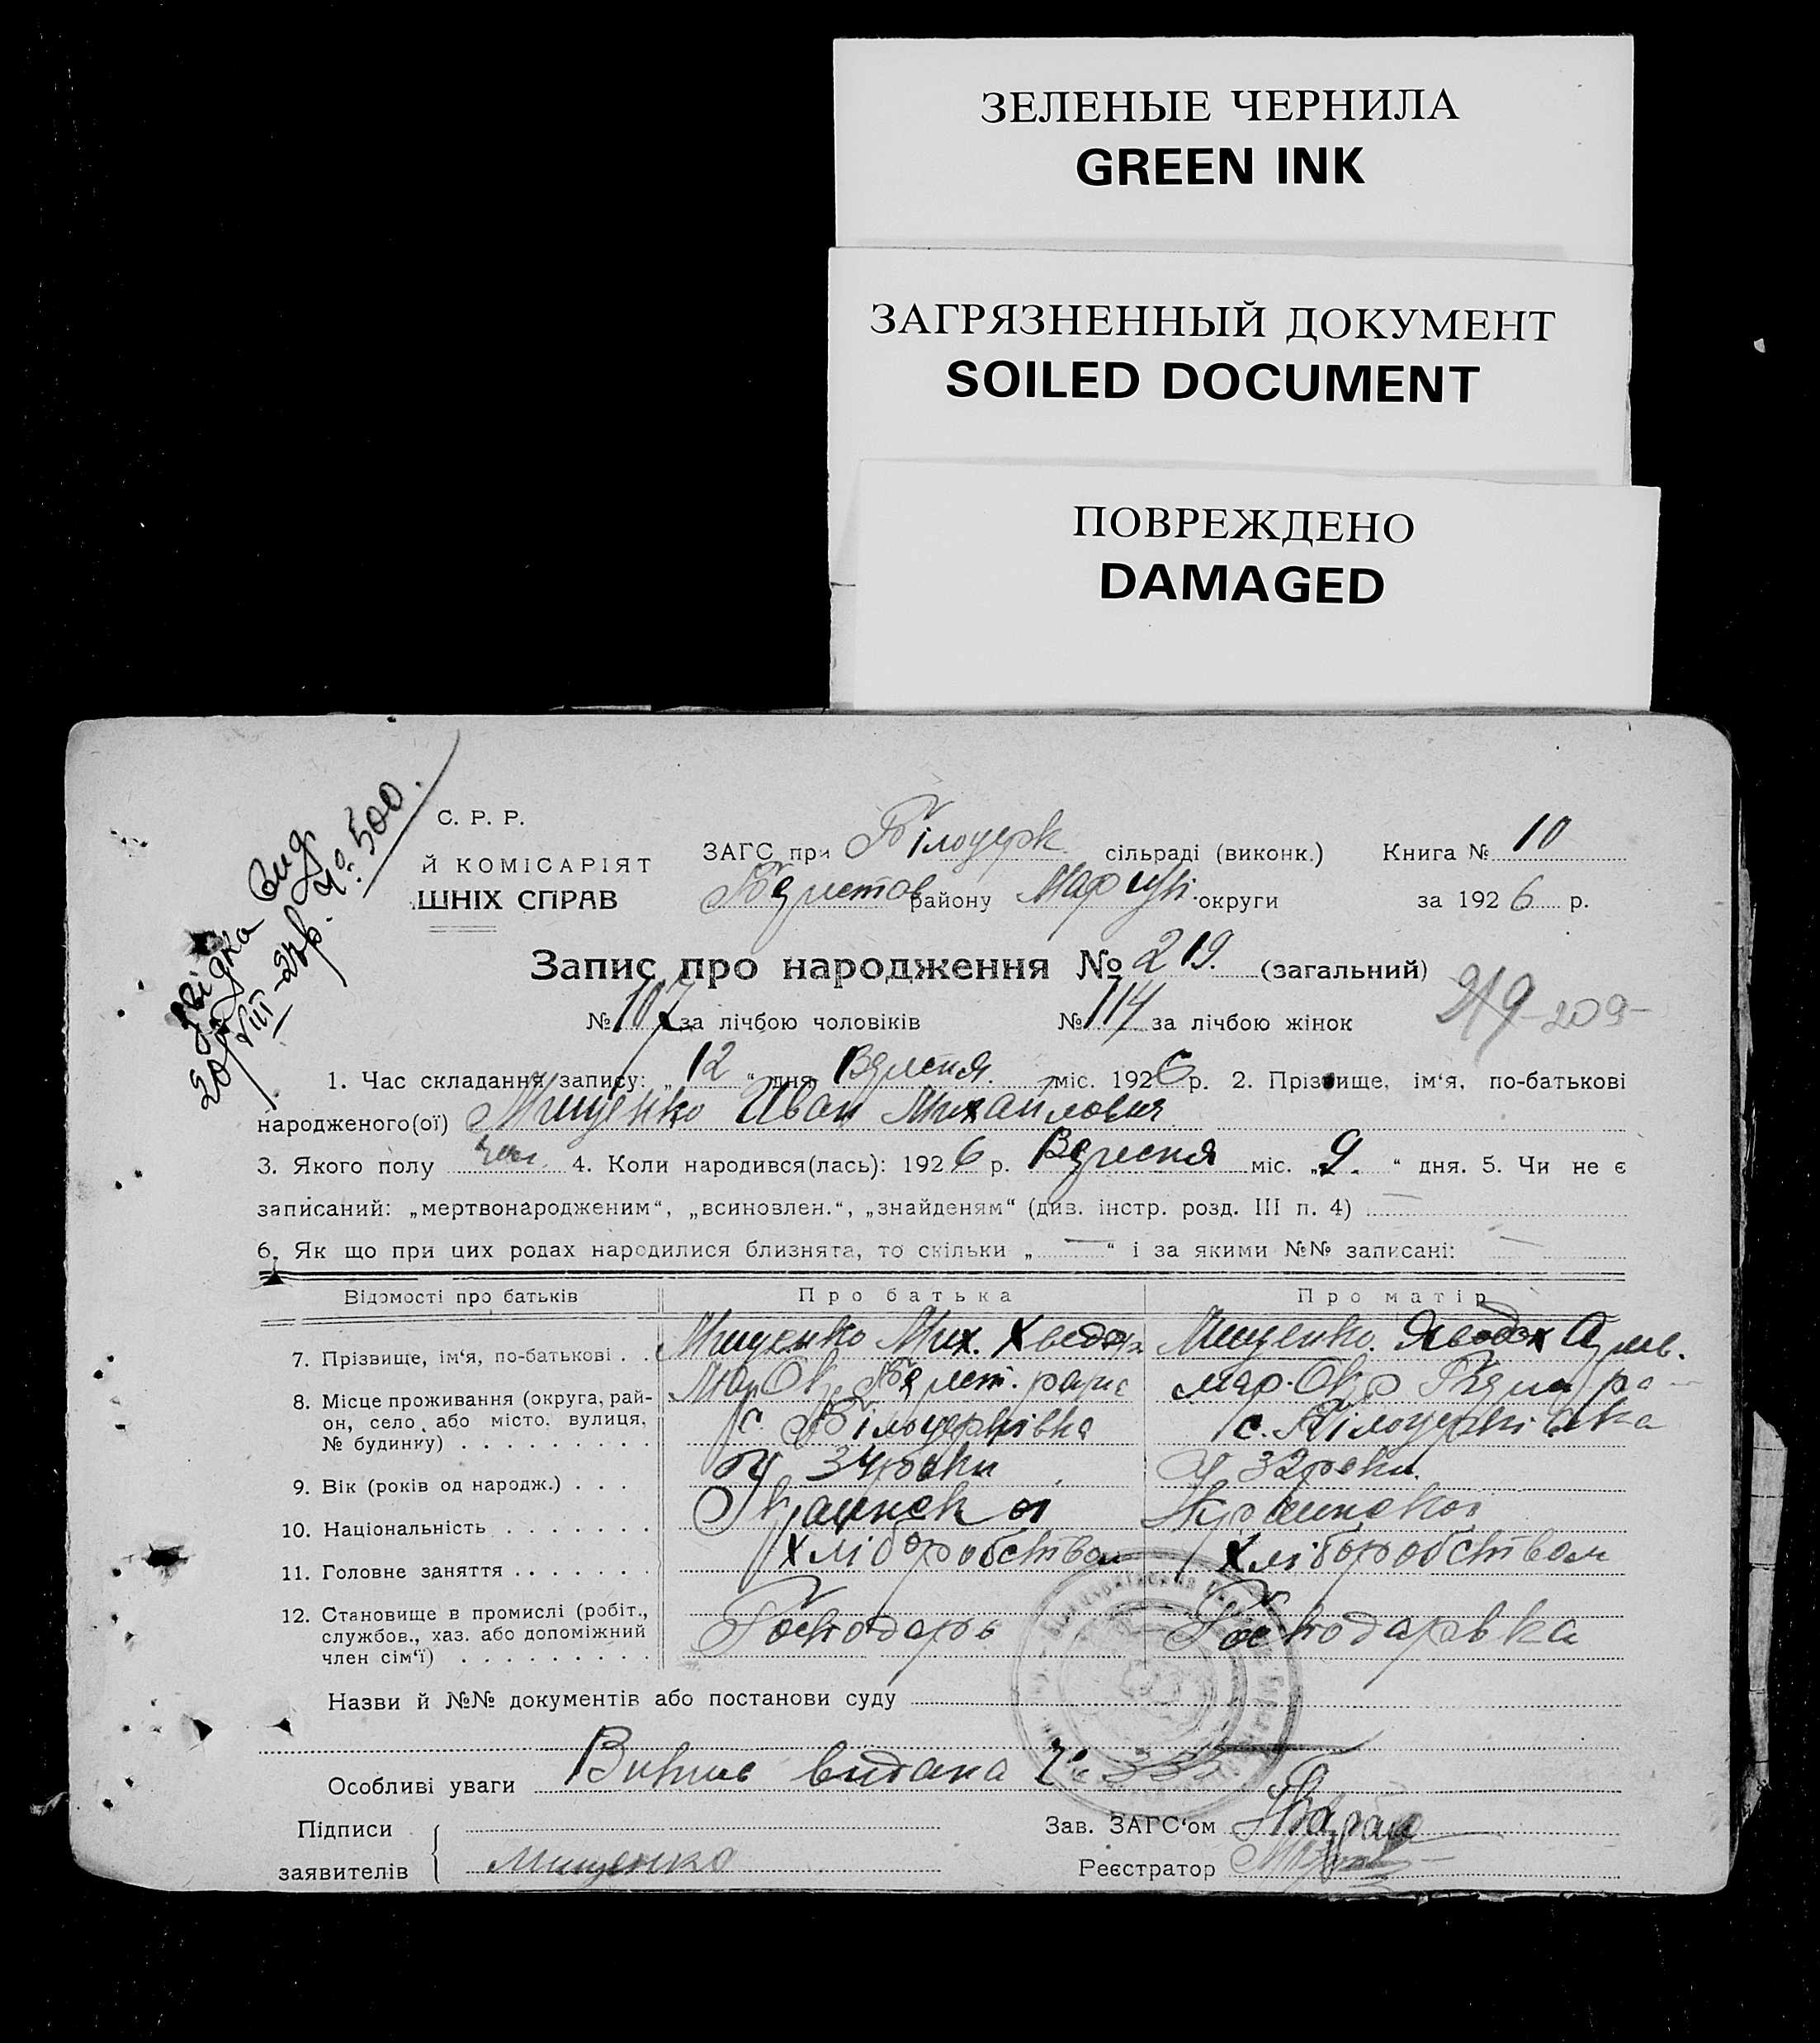 ЗЕЛЕНЫЕ ЧЕРНИЛА
GREEN INK
ЗАГРЯЗНЕННЫЙ ДОКУМЕНТ
SOILED DOCUMENT
ПОВРЕЖДЕНО
DAMAGED
№ 500.
С. Р. Р.
Й КОМІСАРІЯТ
ШНІХ СПРАВ
ЗАГС при Білоцерк. сільраді (виконк.) Книга № 10
району Маріуп. округи за 1926 р.
Запис про народження № 219. (загальний)
219 209
№ 107 за лічбою чоловіків № 114 за лічбою жінок
1. Час складання запису: „12“ дня Вересня. міс. 1926 р. 2. Прізвище, ім‘я, по-батькові
народженого(ої) Мищенко Иван Михайлович
3. Якого полу чол. 4. Коли народився(лась): 1926 р. Вересня міс. „9.“ дня. 5. Чи не є
записаний: „мертвонародженим“, „всиновлен.“, „знайденям“ (див. інстр. розд. III п. 4) —
6. Як що при цих родах народилися близнята, то скільки „—“ і за якими №№ записані: —
Відомості про батьків Про батька Про матір
7. Прізвище, ім‘я, по-батькові . . Мищенко Мих. Хведор Мищенко.
8. Місце проживання (округа, рай-
он, село або місто, вулиця,
№ будинку) . . . . . . . . . с. Білоцерківка с. Білоцерківка
9. Вік (років од народж.) . . . 34 роки 32 роки.
10. Національність . . . . . . . Української Української
11. Головне заняття . . . . . . . Хліборобством Хліборобством
12. Становище в промислі (робіт.,
службов., хаз. або допоміжний
член сім‘ї) . . . . . . . . . Господарь Господарька
Назви й №№ документів або постанови суду
Особливі уваги Випис видана № 335
Підписи
заявителів Мищенко
Зав. ЗАГС‘ом
Реєстратор